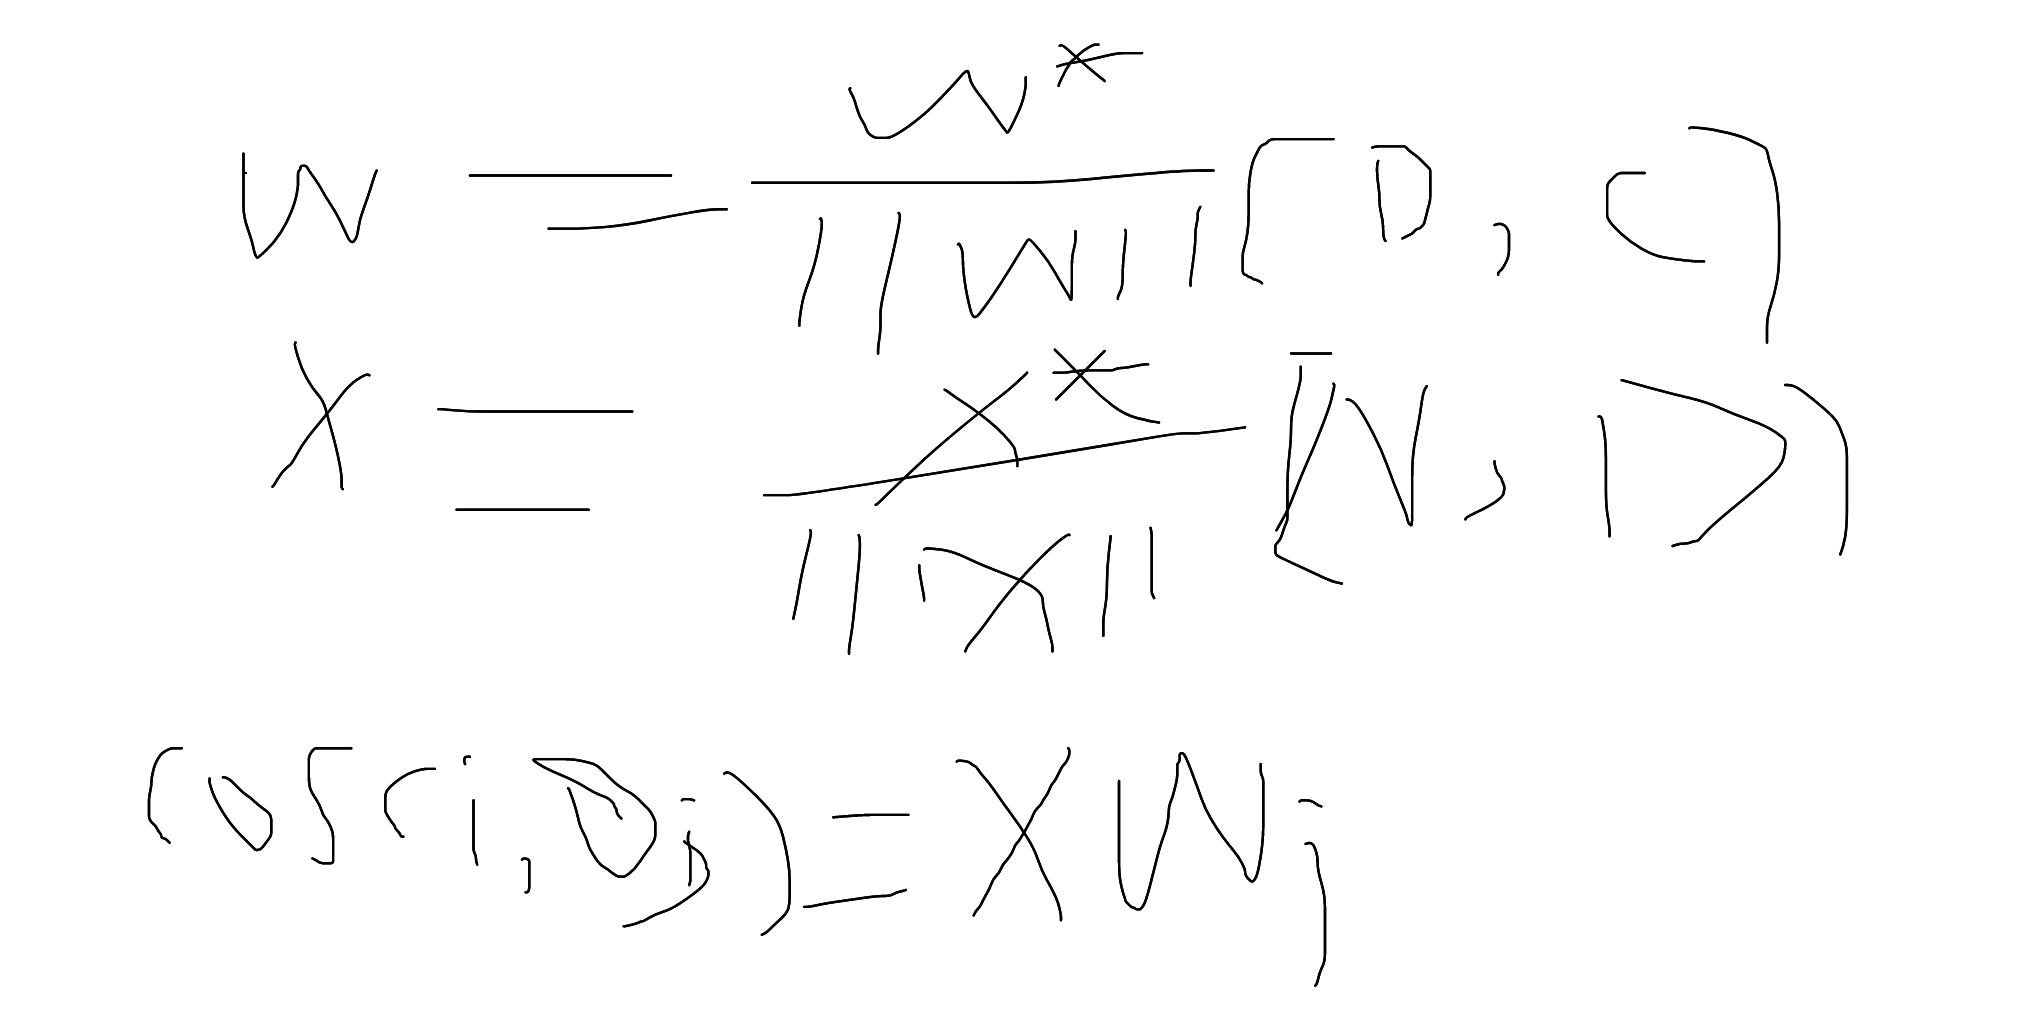 W = W* / ||W|| [D, C]
X = X* / ||X|| [N, D]
cos(i, θj) = X Wj